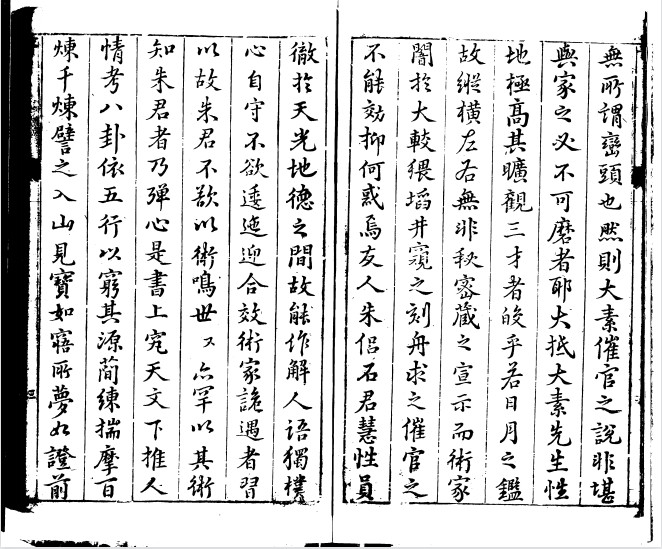 無所謂巒頭也然則大素催官之說非堪
與家之必不可磨者耶大抵大素先生性
地極高其曠觀三才者皎乎若日月之鑑
故縱橫左右無非秘密藏之宣示而術家
闇於大較猥墖井窺之刻舟求之催官之
不能效抑何惑焉友人朱侶石君慧性員
徹於天光地德之間故能作解人語獨樸
心自守不欲逶迤迎合效術家詭遇者習
以故朱君不欲以術鳴世又亦罕以其術
知朱君者乃彈心是書上究天文下推人
情考八卦依五行以窮其源蕳練揣摩百
煉千煉譬之入山見寶如寤所夢如證前
三